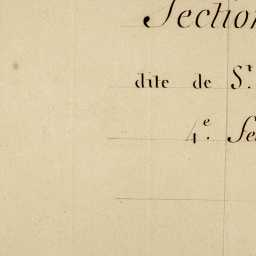 Section
dite de St.
4e. Se